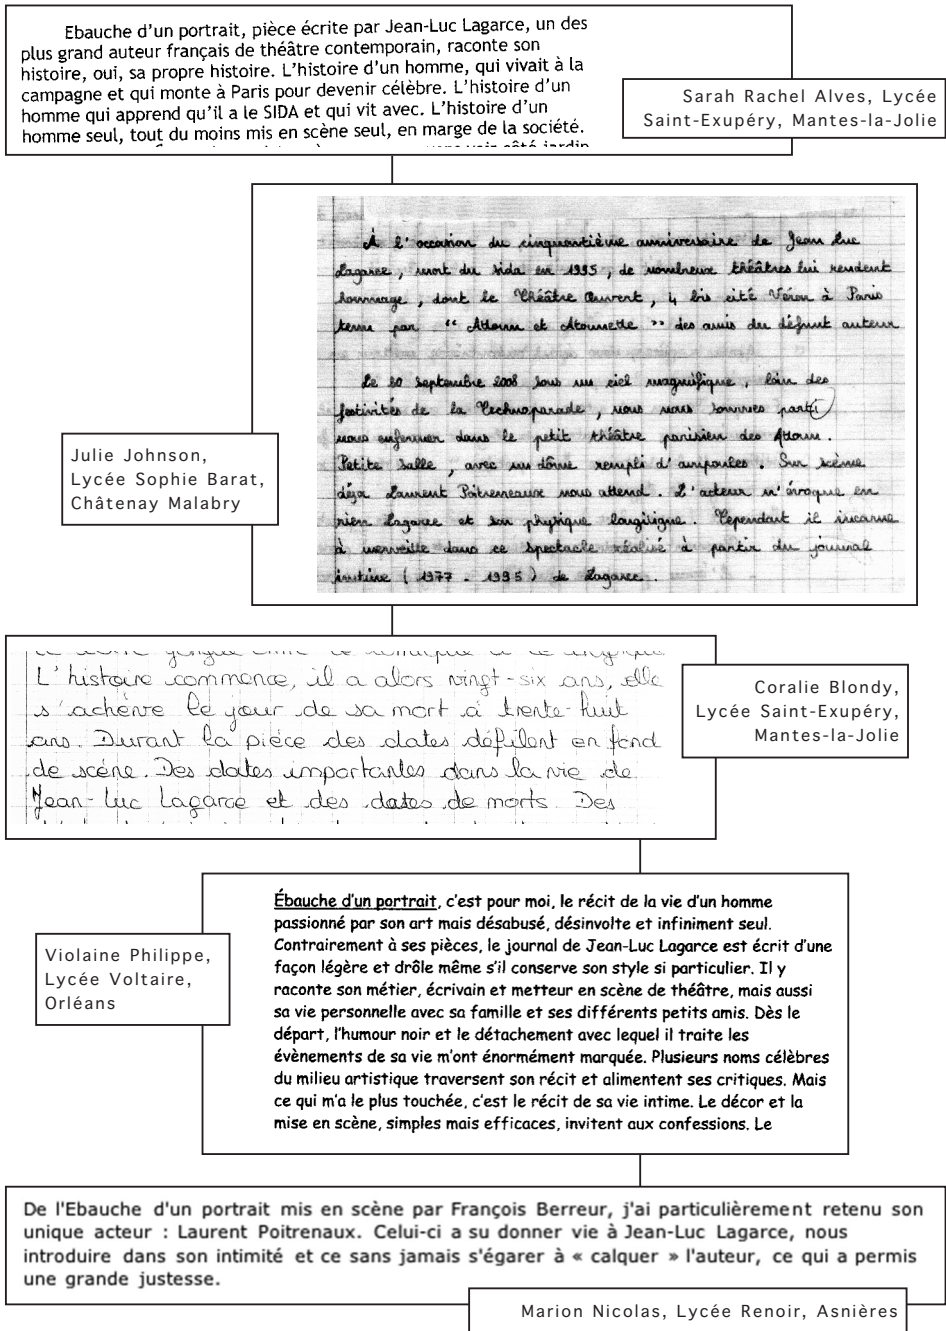 Ebauche d'un portrait, pièce écrite par Jean-Luc Lagarce, un des
plus grand auteur français de théâtre contemporain, raconte son
histoire, oui, sa propre histoire. L'histoire d'un homme, qui vivait à la
campagne et qui monte à Paris pour devenir célèbre. L'histoire d'un
homme qui apprend qu'il a le SIDA et qui vit avec. L'histoire d'un
homme seul, tout du moins mis en scène seul, en marge de la société.
voir côté jardin
Sarah Rachel Alves, Lycée
Saint-Exupéry, Mantes-la-Jolie
À l'occasion du cinquantième anniversaire de Jean Luc
Lagarce, mort du sida en 1995, de nombreux théâtres lui rendent
hommage, dont le Théâtre Ouvert, 4 bis cité Véron à Paris
tenu par "Attoun et Attounette" des amis du défunt auteur
Le septembre 2008 sous un ciel magnifique, loin des
festivités de la Technoparade, nous nous sommes parti
nous enfermer dans le petit théâtre parisien des Attoun.
Petite salle, avec un dôme rempli d'ampoules. Sur scène
déja Laurent Poitreneaux nous attend. L'acteur n'évoque en
rien Lagarce et son physique longiligne. Cependant il incarne
à merveille dans ce spectacle réalisé à partir du journal
intime (1977 - 1995) de Lagarce.
Julie Johnson,
Lycée Sophie Barat,
Châtenay Malabry
L'histoire commence, il a alors vingt-six ans, elle
s'achève le jour de sa mort à trente-huit
ans. Durant la pièce des dates défilent en fond
de scène. Des dates importantes dans la vie de
Jean-Luc Lagarce et des dates de morts. Des
Coralie Blondy,
Lycée Saint-Exupéry,
Mantes-la-Jolie
Ébauche d'un portrait, c'est pour moi, le récit de la vie d'un homme
passionné par son art mais désabusé, désinvolte et infiniment seul.
Contrairement à ses pièces, le journal de Jean-Luc Lagarce est écrit d'une
façon légère et drôle même s'il conserve son style si particulier. Il y
raconte son métier, écrivain et metteur en scène de théâtre, mais aussi
sa vie personnelle avec sa famille et ses différents petits amis. Dès le
départ, l'humour noir et le détachement avec lequel il traite les
évènements de sa vie m'ont énormément marquée. Plusieurs noms célèbres
du milieu artistique traversent son récit et alimentent ses critiques. Mais
ce qui m'a le plus touchée, c'est le récit de sa vie intime. Le décor et la
mise en scène, simples mais efficaces, invitent aux confessions. Le
Violaine Philippe,
Lycée Voltaire,
Orléans
De l'Ebauche d'un portrait mis en scène par François Berreur, j'ai particulièrement retenu son
unique acteur : Laurent Poitrenaux. Celui-ci a su donner vie à Jean-Luc Lagarce, nous
introduire dans son intimité et ce sans jamais s'égarer à « calquer » l'auteur, ce qui a permis
une grande justesse.
Marion Nicolas, Lycée Renoir, Asnières